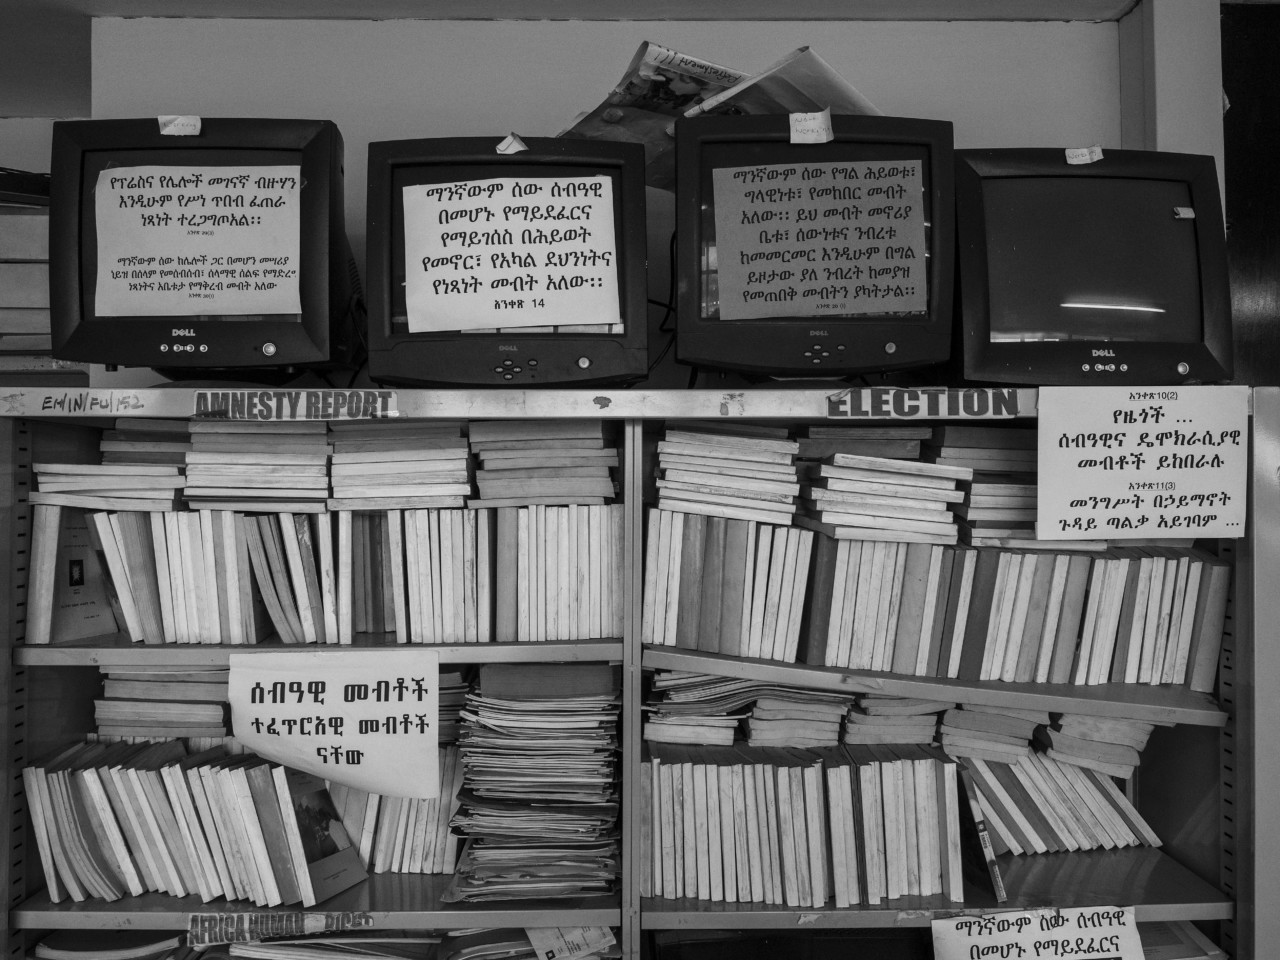 የፕሬስና የሌሎች መገናኛ ብዙሃን
እንዲሁም የሥነ ጥበብ ፈጠራ
ነጻነት ተረጋግጦአል፡፡
ማንኛውም ሰው ከሌሎች ጋር በመሆን መሣሪያ
ሳይዝ በሰላም የመሰብሰብ፣ ሰላማዊ ሰልፍ የማድረግ
ነጻነትና አቤቱታ የማቅረብ መብት አለው
DELL
ማንኛውም ሰው ሰብዓዊ
በመሆኑ የማይደፈርና
የማይገሰስ በሕይወት
የመኖር፣ የአካል ደህንነትና
የነጻነት መብት አለው፡፡
አንቀጽ 14
DELL
ማንኛውም ሰው የግል ሕይወቱ፣
ግላዊነቱ፣ የመከበር መብት
አለው፡፡ ይህ መብት መኖሪያ
ቤቱ፣ ሰውነቱና ንብረቱ
ከመመርመር እንዲሁም በግል
ይዞታው ያለ ንብረት ከመያዝ
የመጠበቅ መብትን ያካትታል፡፡
DELL
DELL
EH/IN/FU/152
AMNESTY REPORT
ELECTION
አንቀጽ 10(2)
የዜጎች ...
ሰብዓዊና ዴሞክራሲያዊ
መብቶች ይከበራሉ
አንቀጽ 11(3)
መንግሥት በኃይማኖት
ጉዳይ ጣልቃ አይገባም ...
ሰብዓዊ መብቶች
ተፈጥሮአዊ መብቶች
ናቸው
AFRICA HUMAN
ማንኛውም ሰው ሰብዓዊ
በመሆኑ የማይደፈርና